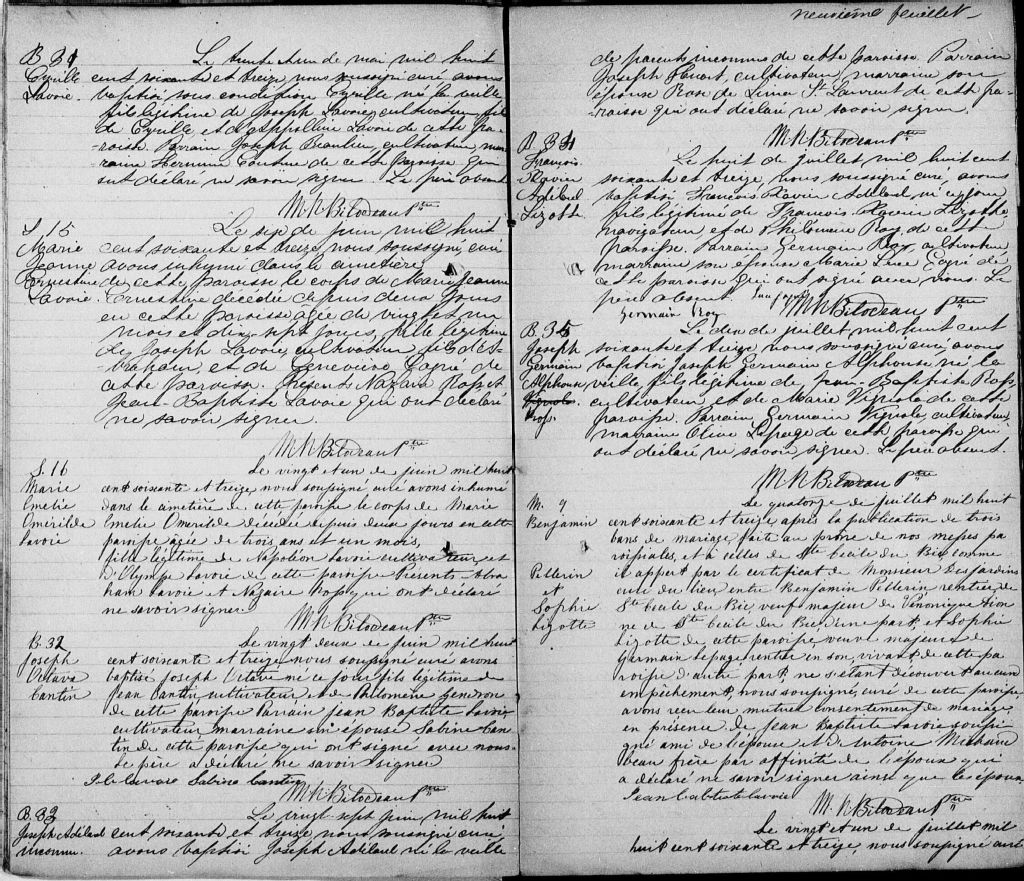 B 31
Cyrille
Lavoie.
Le trente et un de mai mil huit
cent soixante et treize nous soussigné curé avons
baptisé sous condition Cyrille né la veille
fils légitime de Joseph Lavoie, cultivateur, fils
de Cyrille et d'Appolline Lavoie de cette pa-
roisse. Parrain Joseph Beaulieu, cultivateur, mar-
raine Hermine de cette paroisse qui
ont déclaré ne savoir signer. Le père absent
M N Bilodeau Ptre
S 15
Marie
Jeanne
Ernestine
Lavoie.
Le sept de juin mil huit
cent soixante et treize nous soussigné, curé
avons inhumé dans le cimetière
de cette paroisse le corps de Marie Jeanne
Ernestine décédée depuis deux jours
en cette paroisse âgée de vingt et un
mois et dix-sept jours, fille légitime
de Joseph Lavoie, cultivateur, fils d'A-
braham, et de Geneviève Gagné de
cette paroisse. Présents Nazaire Ross et
Jean-Baptiste Lavoie qui ont déclaré
ne savoir signer.
M N Bilodeau Ptre
S. 16
Marie
Emelie
Omérilda
Lavoie
Le vingt et un de juin mil huit
cent soixante et treize, nous soussigné curé avons inhumé
dans le cimetière de cette paroisse le corps de Marie
Emelie Omerilde décédée depuis deux jours en cette
paroisse agée de trois ans et un mois,
fille légitime de Napoléon Lavoie cultivateur, et
d'Olympe Lavoie de cette paroisse Présents Abra
ham Lavoie et Nazaire Ross qui ont déclaré
ne savoir signer
M N Bilodeau Ptre
B. 32
Joseph
Octave
Cantin
Le vingt deux de juin mil huit
cent soixante et treize nous soussigné curé avons
baptisé Joseph Octave né ce jour fils légitime de
Jean Cantin cultivateur et de Philomène Gendron
de cette paroisse Parrain Jean Baptiste Lavoie
cultivateur marraine son épouse Sabine Can
tin de cette paroisse qui ont signé avec nous
Le père a déclaré ne savoir signer
J. b. Lavoie Sabine Cantin
M N Bilodeau Ptre
B. 33
Joseph Adélard
inconnu.
Le vingt sept juin mil huit
cent soixante et treize, nous soussigné curé,
avons baptisé Joseph Adélard né la veille
neuvième feuillet
de parents inconnus de cette paroisse. Parrain
Joseph Huart, cultivateur, marraine son
épouse Rose de Lima St Laurent de cette pa-
roisse qui ont déclaré ne savoir signer.
M N Bilodeau Ptre
B. 34
François
Flavien
Adélard
Lizotte
Le huit de juillet mil huit cent
soixante et treize, nous soussigné curé, avons
baptisé François Flavien Adélard, né ce jour
fils légitime de François Flavien Lizotte,
navigateur, et de Philomène Roy, de cette
paroisse. Parrain Germain Roy, cultivateur
marraine son épouse Marie Luce Gagné de
cette paroisse qui ont signé avec nous. Le
père absent.
Germain Roy
M N Bilodeau Ptre
B. 35
Joseph
Germain
Alphonse
Ross.
Le dix de juillet mil huit cent
soixante et treize nous soussigné curé avons
baptisé Joseph Germain Alphonse né la
veille, fils légitime de Jean-Baptiste Ross,
cultivateur et de Marie Vignola de cette
paroisse. Parrain Germain Vignola, cultivateur,
marraine Olive Lepage de cette paroisse qui
ont déclaré ne savoir signer. Le père absent.
M N Bilodeau Ptre
M. 9
Benjamin
Pellerin
et
Sophie
Lizotte
Le quatorze de juillet mil huit
cent soixante et treize, après la publication de trois
bans de mariage faite au prône de nos messes pa
roissiales, et à celles de Ste Cécile du Bic comme
il appert par le certificat de Monsieur Desjardins
curé du lieu, entre Benjamin Pellerin rentier, de
Ste Cécile du Bic, veuf majeur de Véronique
de Ste Cécile du Bic d'une part, et Sophie
Lizotte de cette paroisse, veuve majeure de
Germain Lepage rentier en son vivant de cette pa
roisse d'autre part, ne s'étant découvert aucun
empêchement, nous soussigné, curé de cette paroisse,
avons reçu leur mutuel consentement de mariage
en présence de Jean Baptiste Lavoie soussi
gné ami de l'épouse et d'Antoine Michaud
beau frère par affinité de l'époux qui
a déclaré ne savoir signer ainsi que les époux
Jean baptiste lavoie
M. N. Bilodeau Ptre
Le vingt et un de juillet mil
huit cent soixante et treize, nous soussigné curé